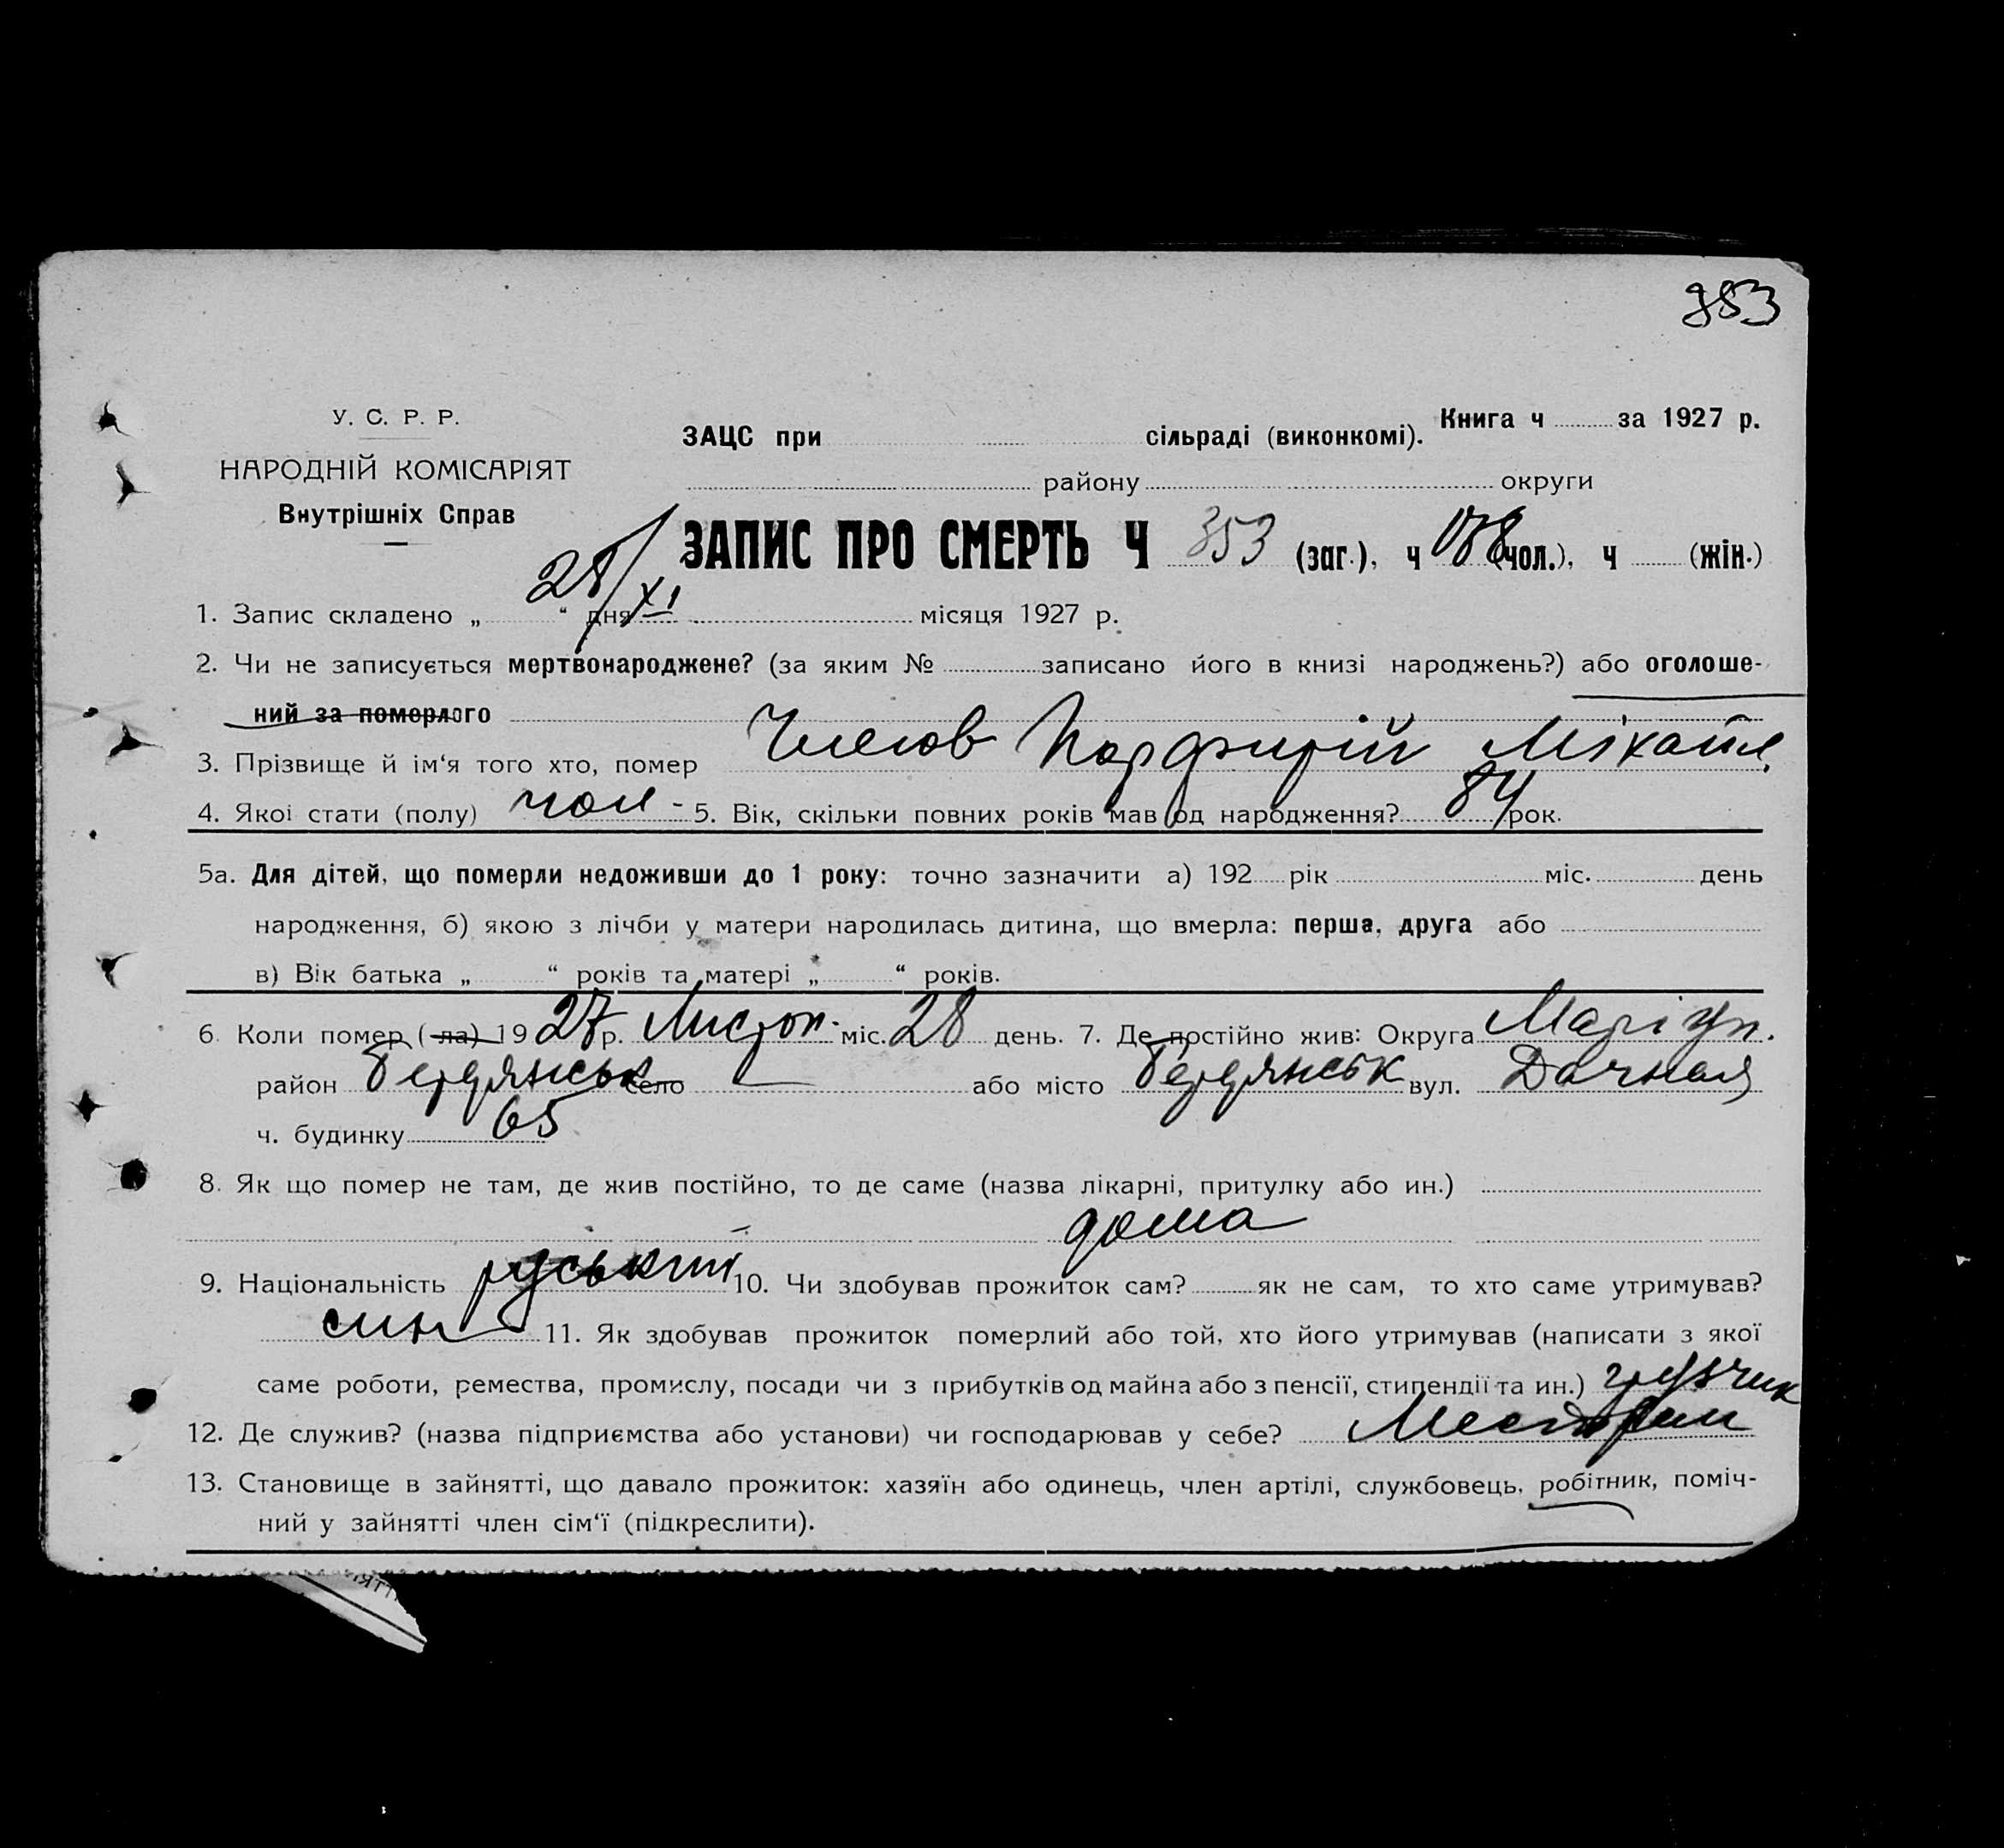 353
У. С. Р. Р.
НАРОДНІЙ КОМІСАРІЯТ
Внутрішніх Справ
ЗАЦС при сільраді (виконкомі). Книга ч за 1927 р.
району округи
ЗАПИС ПРО СМЕРТЬ Ч 353 (заг.), ч 188 (чол.), ч (жін.)
1. Запис складено „ 28/XI “ дня місяця 1927 р.
2. Чи не записується мертвонароджене? (за яким № записано його в книзі народжень?) або оголоше-
ний за померлого
3. Прізвище й ім‘я того хто, помер Порфирій Міхайл.
4. Якої стати (полу) чол - 5. Вік, скільки повних років мав од народження? 84 рок.
5а. Для дітей, що померли недоживши до 1 року: точно зазначити а) 192 рік міс. день
народження, б) якою з лічби у матери народилась дитина, що вмерла: перша, друга або
в) Вік батька „ “ років та матері „ “ років.
6. Коли помер (ла) 1927 р. Листоп. міс. 28 день. 7. Де постійно жив: Округа Маріуп.
район Бердянськ село або місто Бердянськ вул. Дачная
ч. будинку 65
8. Як що помер не там, де жив постійно, то де саме (назва лікарні, притулку або ин.)
дома
9. Національність руський 10. Чи здобував прожиток сам? як не сам, то хто саме утримував?
син 11. Як здобував прожиток померлий або той, хто його утримував (написати з якої
саме роботи, ремества, промислу, посади чи з прибутків од майна або з пенсії, стипендії та ин.) грузчик
12. Де служив? (назва підприємства або установи) чи господарював у себе?
13. Становище в зайнятті, що давало прожиток: хазяїн або одинець, член артілі, службовець, робітник, поміч-
ний у зайнятті член сім‘ї (підкреслити).